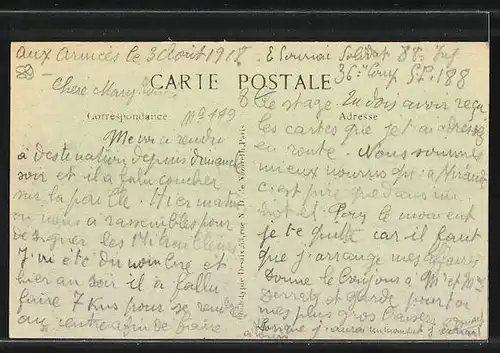 Aux Armées le 3 Août 1918. E Sourrieu Soldat 88e Inf
36e Comp S.P. 188
Chère Mary
CARTE POSTALE
Correspondance
Adresse
No 199
Me voici rendu
à destination depuis dimanche
soir et il a falu coucher
sur la paille. Hier matin
on nous a rassemblés pour
désigner les Mitrailleurs
J'ai été du nombre et
hier au soir il a fallu
faire 7 Kms pour se rendre
au centre afin de faire
le stage. Tu dois avoir reçu
les cartes que je t'ai adressé
en route. Nous sommes
mieux nourris qu'à Mirande
c'est pire que dans un
hotel. Pour le moment
je te quitte car il faut
que j'arrange mes affaires
Donne le Bonjour à Mr et Mme
et garde pour toi
mes plus gros baisers
Lorsque j'aurai un moment